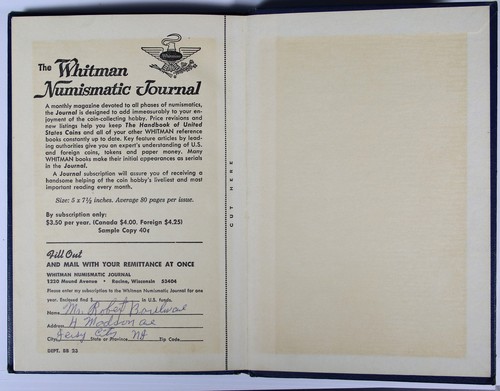 The Whitman
Numismatic Journal
A monthly magazine devoted to all phases of numismatics,
the Journal is designed to add immeasurably to your en-
joyment of the coin-collecting hobby. Price revisions and
new listings help you keep The Handbook of United
States Coins and all of your other WHITMAN reference
books constantly up to date. Key feature articles by lead-
ing authorities give you an expert's understanding of U.S.
and foreign coins, tokens and paper money. Many
WHITMAN books make their initial appearances as serials
in the Journal.
A Journal subscription will assure you of receiving a
handsome helping of the coin hobby's liveliest and most
important reading every month.
Size: 5 x 7½ inches. Average 80 pages per issue.
By subscription only:
$3.50 per year. (Canada $4.00, Foreign $4.25)
Sample Copy 40¢
Fill Out
AND MAIL WITH YOUR REMITTANCE AT ONCE
WHITMAN NUMISMATIC JOURNAL
1220 Mound Avenue • Racine, Wisconsin 53404
Please enter my subscription to the Whitman Numismatic Journal for one
year. Enclosed find $ in U.S. funds.
Name Mr. Robert
Address 4 Madison ave
City Jersey City State or Province NJ Zip Code
DEPT. BB 25
CUT HERE